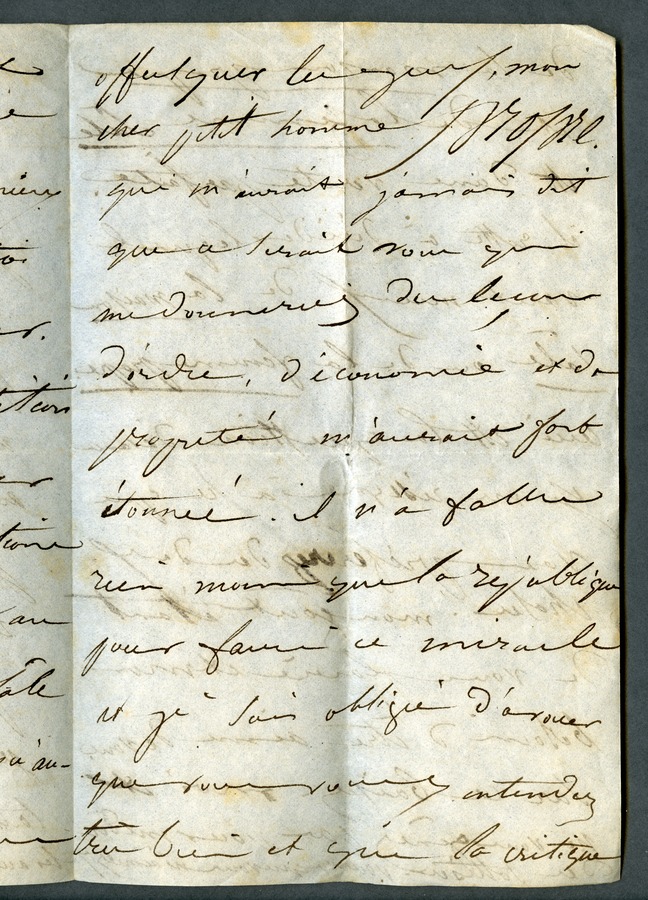 offusquer les yeux, mon
cher petit homme propre.
qui m'aurait jamais dit
que ce serait vous qui
me donneriez des leçons
d'ordre, d'économie et de
propreté m'aurait fort
étonnée. il n'a fallu
rien moins que la république
pour faire ce miracle
et je suis obligée d'avouer
que vous vous y entendez
très bien et que la critique